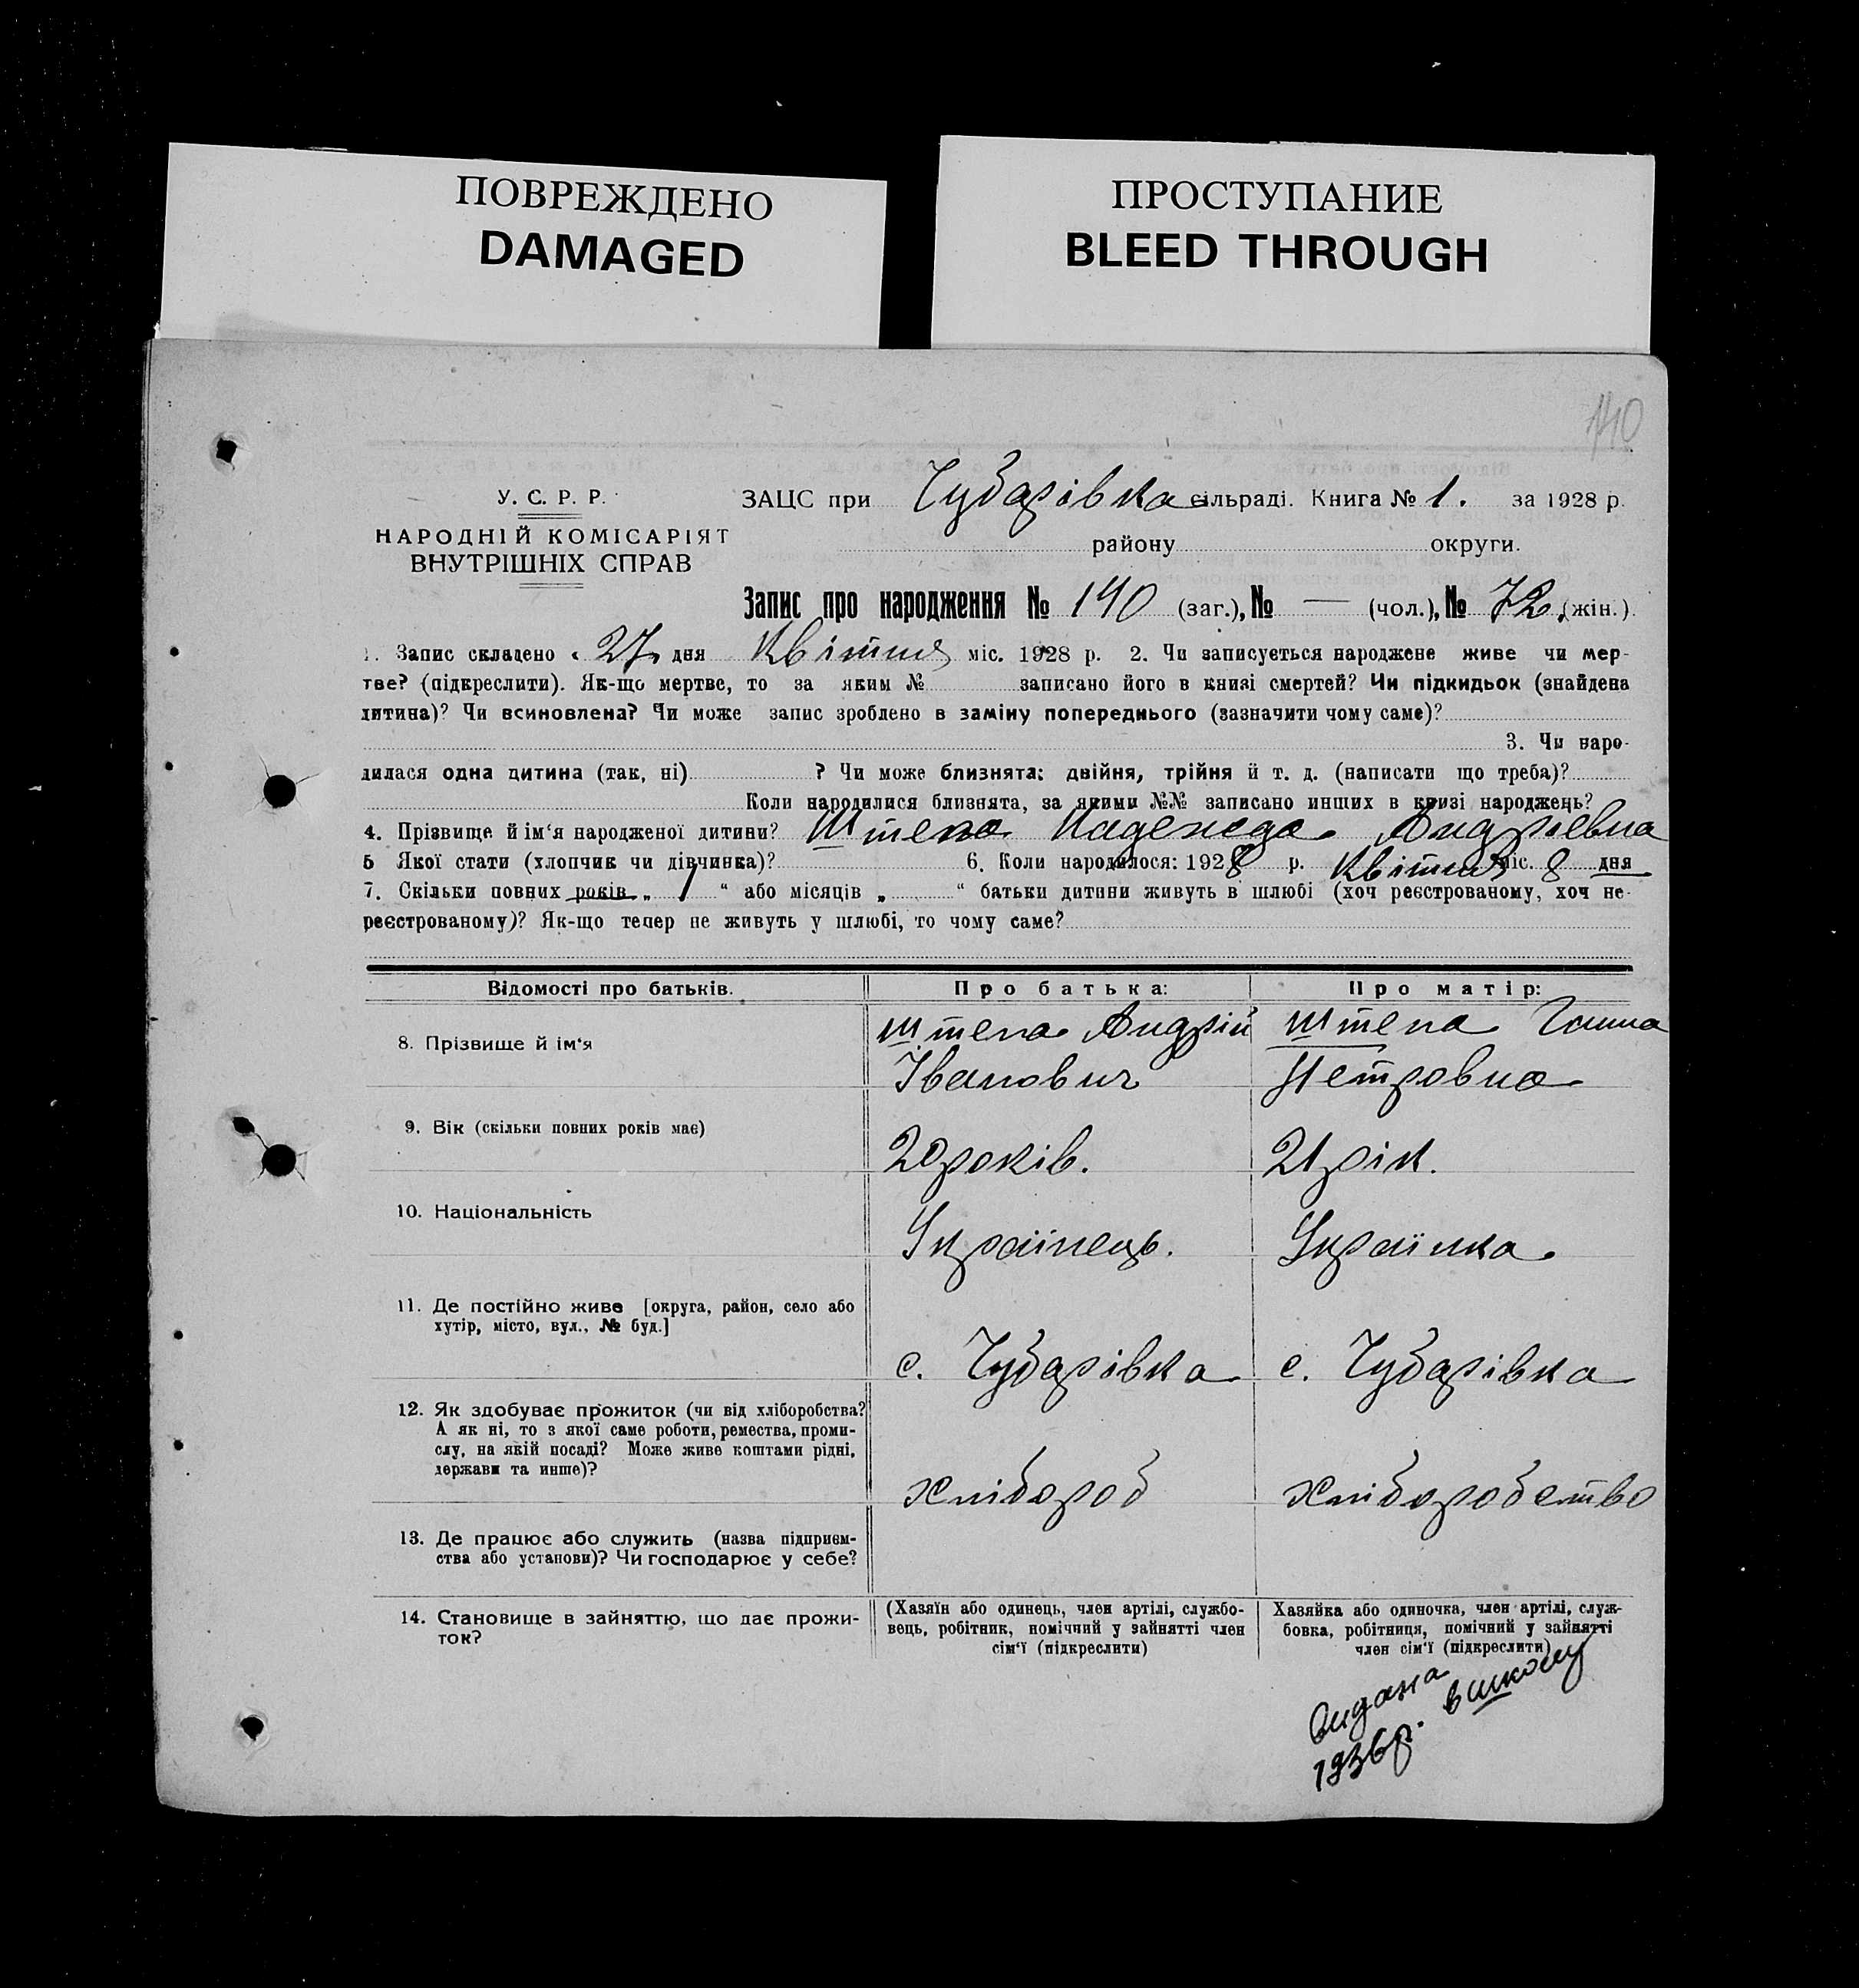 ПОВРЕЖДЕНО
DAMAGED
ПРОСТУПАНИЕ
BLEED THROUGH
140
У. С. Р. Р.
НАРОДНІЙ КОМІСАРІЯТ
ВНУТРІШНІХ СПРАВ
ЗАЦС при Чубарівка сільраді. Книга № 1. за 1928 р.
району округи.
Запис про народження № 140 (заг.), № — (чол.), № 72. (жін.).
1. Запис складено „ 27 „ дня Квітня міс. 1928 р. 2. Чи записується народжене живе чи мер-
тве? (підкреслити). Як-що мертве, то за яким № записано його в книзі смертей? Чи підкидьок (знайдена
дитина)? Чи всиновлена? Чи може запис зроблено в заміну попереднього (зазначити чому саме)?
3. Чи наро-
дилася одна дитина (так, ні) ? Чи може близнята: двійня, трійня й т. д. (написати що треба)?
Коли народилися близнята, за якими №№ записано инших в книзі народжень?
4. Прізвище й ім‘я народженої дитини? Штепа Надежда Андріевна
5 Якої стати (хлопчик чи дівчинка)? 6. Коли народилося: 1928 р. Квітня міс. 8 дня
7. Скільки повних років „ 1 “ або місяців „ “ батьки дитини живуть в шлюбі (хоч реєстрованому, хоч не-
реєстрованому)? Як-що тепер не живуть у шлюбі, то чому саме?
Відомості про батьків. Про батька: Про матір:
8. Прізвище й ім‘я Штепа Андрій Штепа Ганна
Іванович Петровна
9. Вік (скільки повних років має) 20 років. 21 рік.
10. Національність Українець. Українка.
11. Де постійно живе [округа, район, село або
хутір, місто, вул., № буд.]
с. Чубарівка с. Чубарівка
12. Як здобуває прожиток (чи від хліборобства?
А як ні, то з якої саме роботи, ремества, проми-
слу, на якій посаді? Може живе коштами рідні,
держави та инше)?
хлібороб хліборобство
13. Де працює або служить (назва підприєм-
ства або установи)? Чи господарює у себе?
14. Становище в зайняттю, що дає прожи-
ток?
(Хазяїн або одинець, член артілі, службо-
вець, робітник, помічний у зайнятті член
сім‘ї (підкреслити)
Хазяйка або одиночка, член артілі, служ-
бовка, робітниця, помічний у зайнятті
член сім‘ї (підкреслити)
видана в школу
1936р.